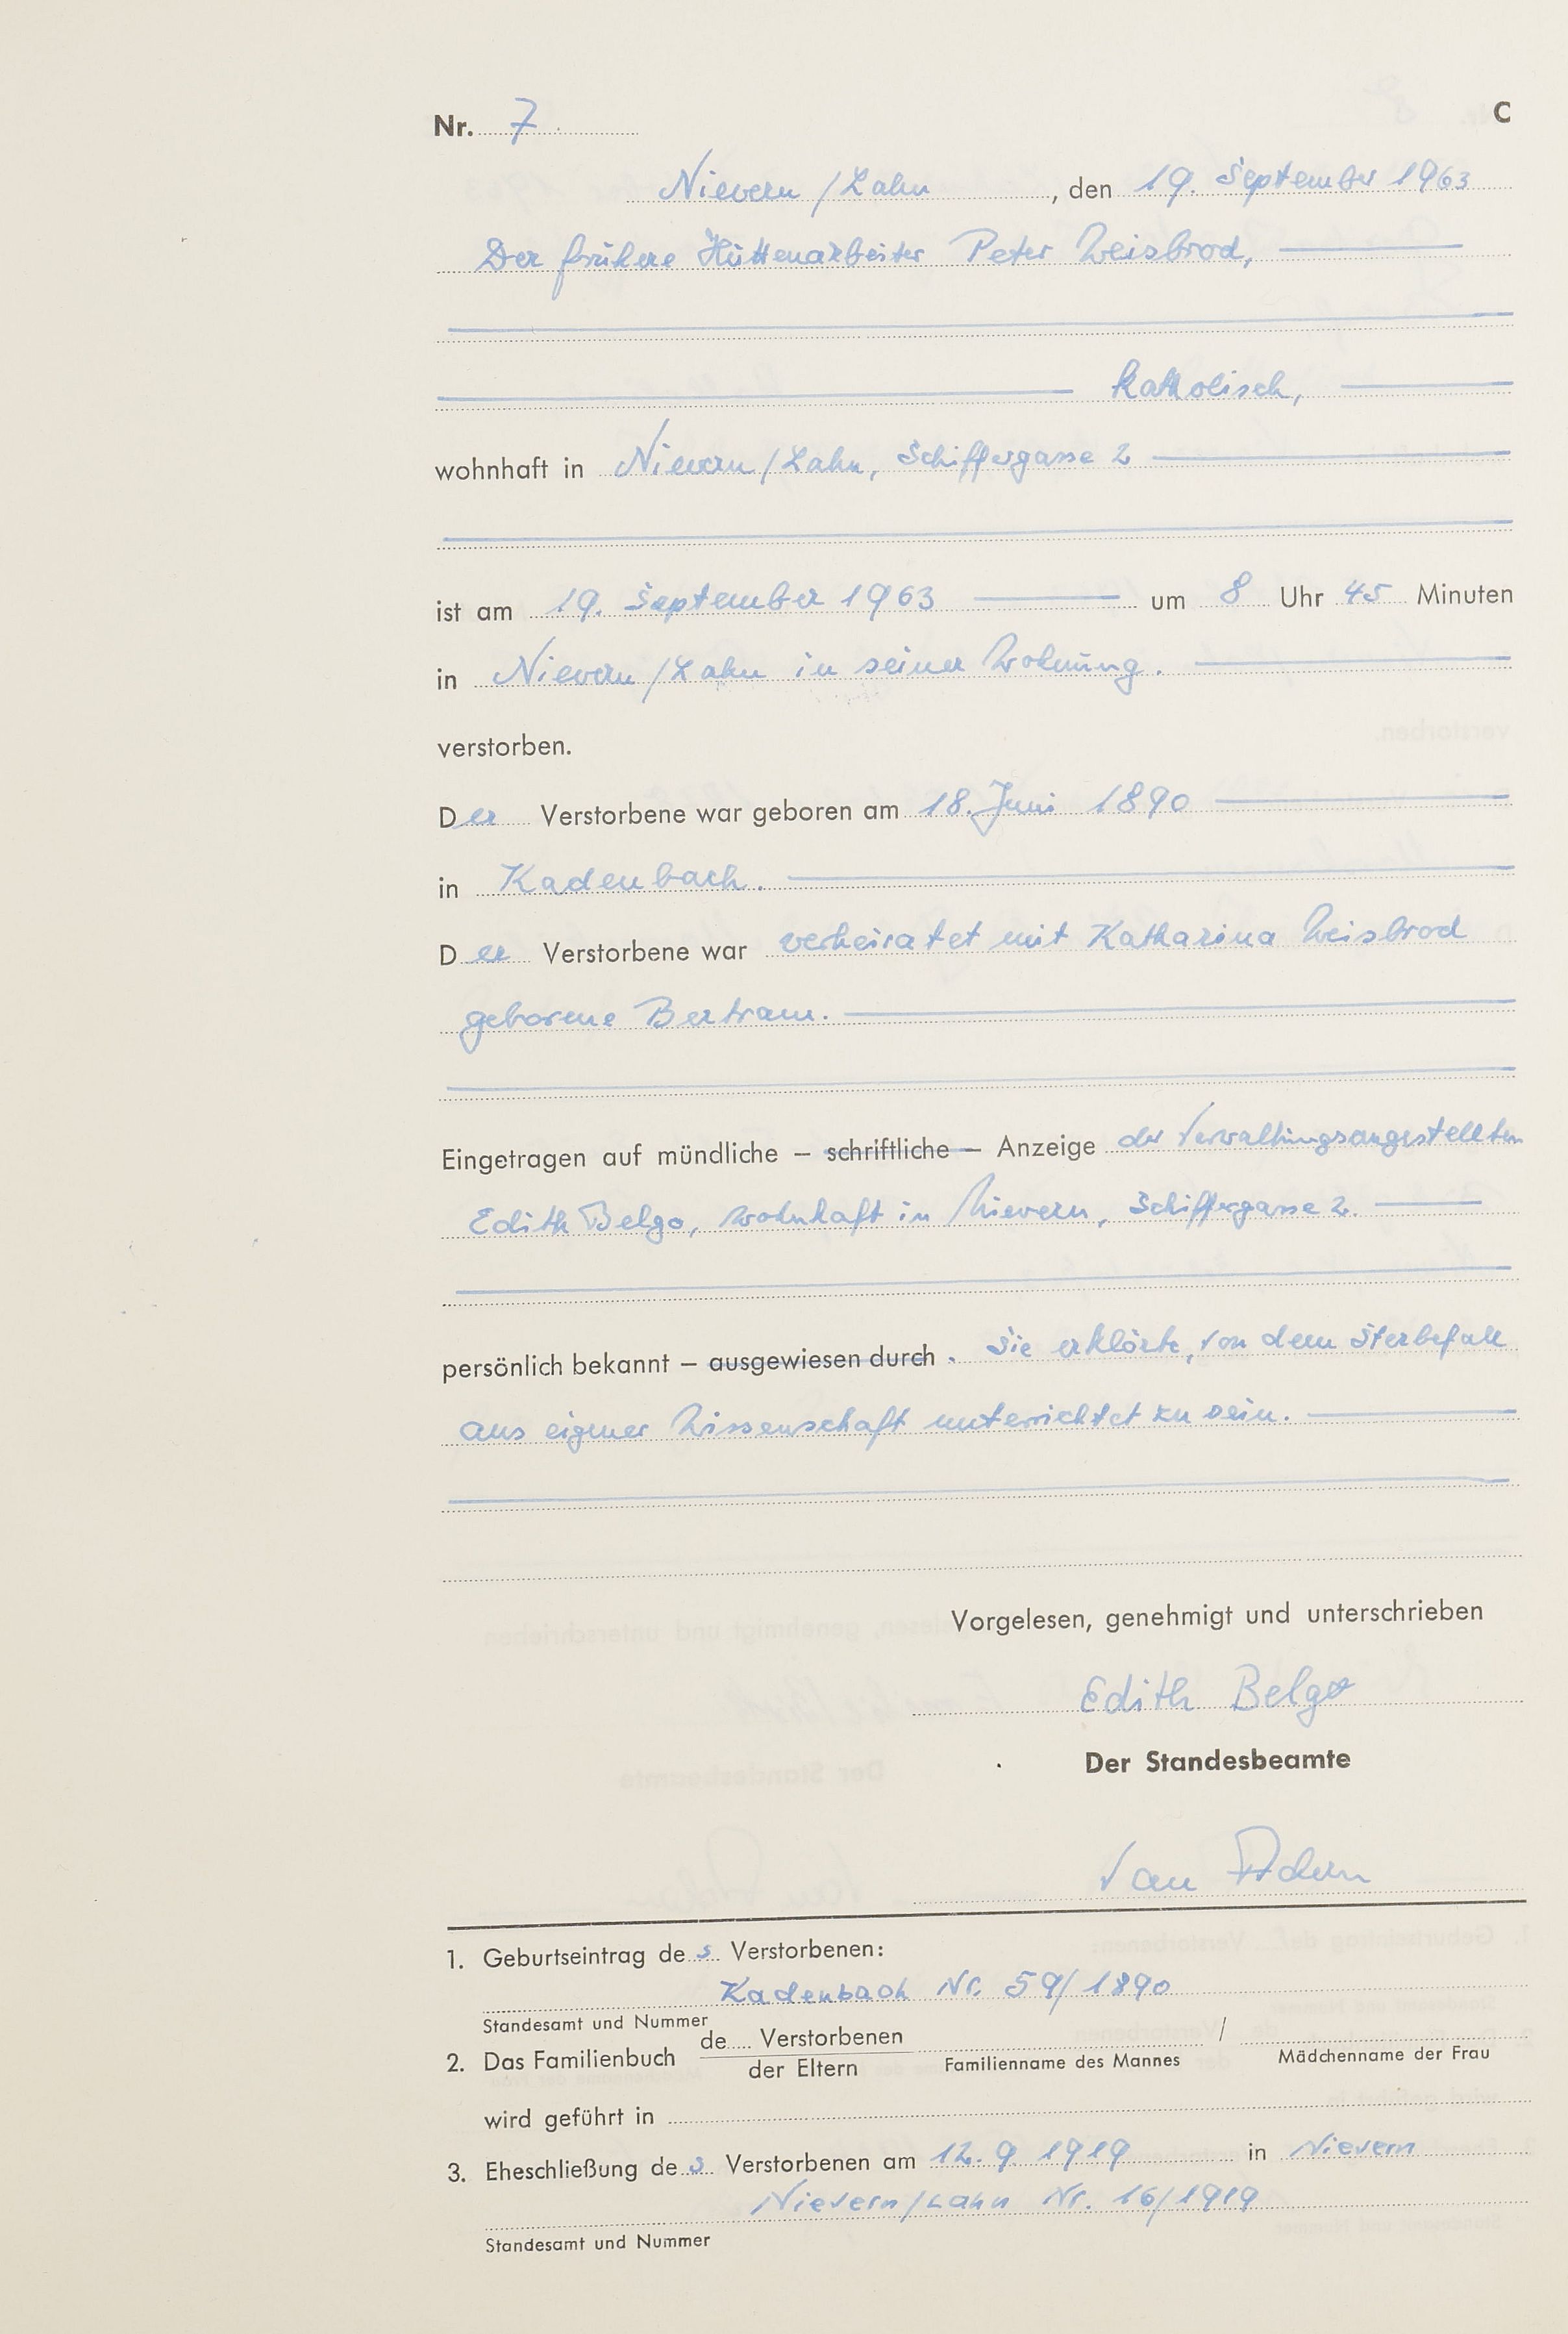 Nr. 7 C
Nievern/Lahn, den 19. September 1963
Der frühere Hüttenarbeiter Peter Weisbrod,
katholisch,
wohnhaft in Nievern/Lahn, Schiffergasse 2
ist am 19. September 1963 um 8 Uhr 45 Minuten
in Nievern/Lahn in seiner Wohnung.
verstorben.
Der Verstorbene war geboren am 18. Juni 1890
in Kadenbach.
Der Verstorbene war verheiratet mit Katharina Weisbrod
geborene Bertram.
Eingetragen auf mündliche – schriftliche – Anzeige der Verwaltungsangestellten
Edith Belgo, wohnhaft in Nievern, Schiffergasse 2.
persönlich bekannt – ausgewiesen durch. Sie erklärte, von dem Sterbefall
aus eigener Wissenschaft unterrichtet zu sein.
Vorgelesen, genehmigt und unterschrieben
Edith Belgo
Der Standesbeamte
1. Geburtseintrag des Verstorbenen:
Kadenbach Nr. 59/1890
Standesamt und Nummer
2. Das Familienbuch de.... Verstorbenen / 
der Eltern Familienname des Mannes Mädchenname der Frau
wird geführt in
3. Eheschließung des Verstorbenen am 12.9.1919 in Nievern
Nievern/Lahn Nr. 16/1919
Standesamt und Nummer